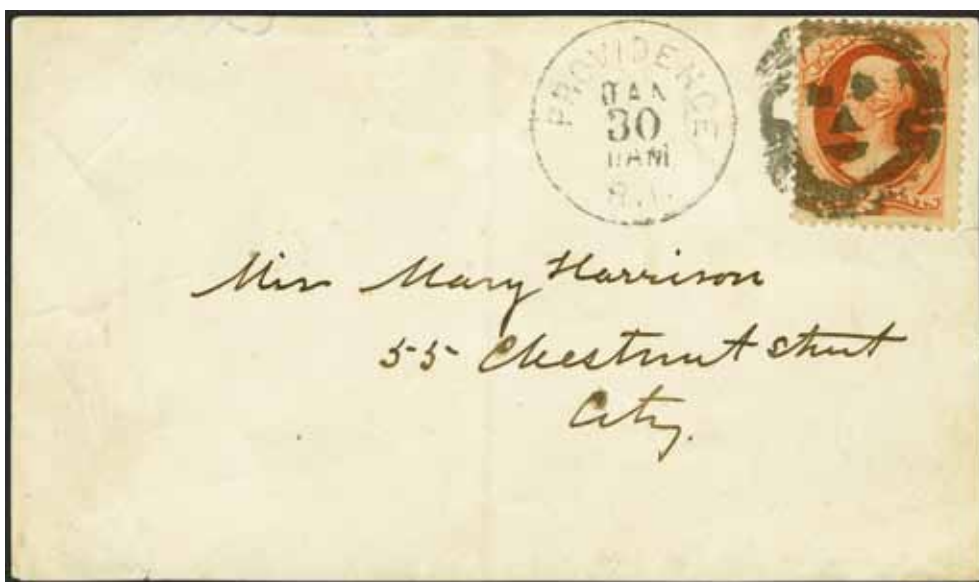 PROVIDENCE
JAN
30
11AM
R.I.
Miss Mary Harrison
55 Chestnut Street
City.